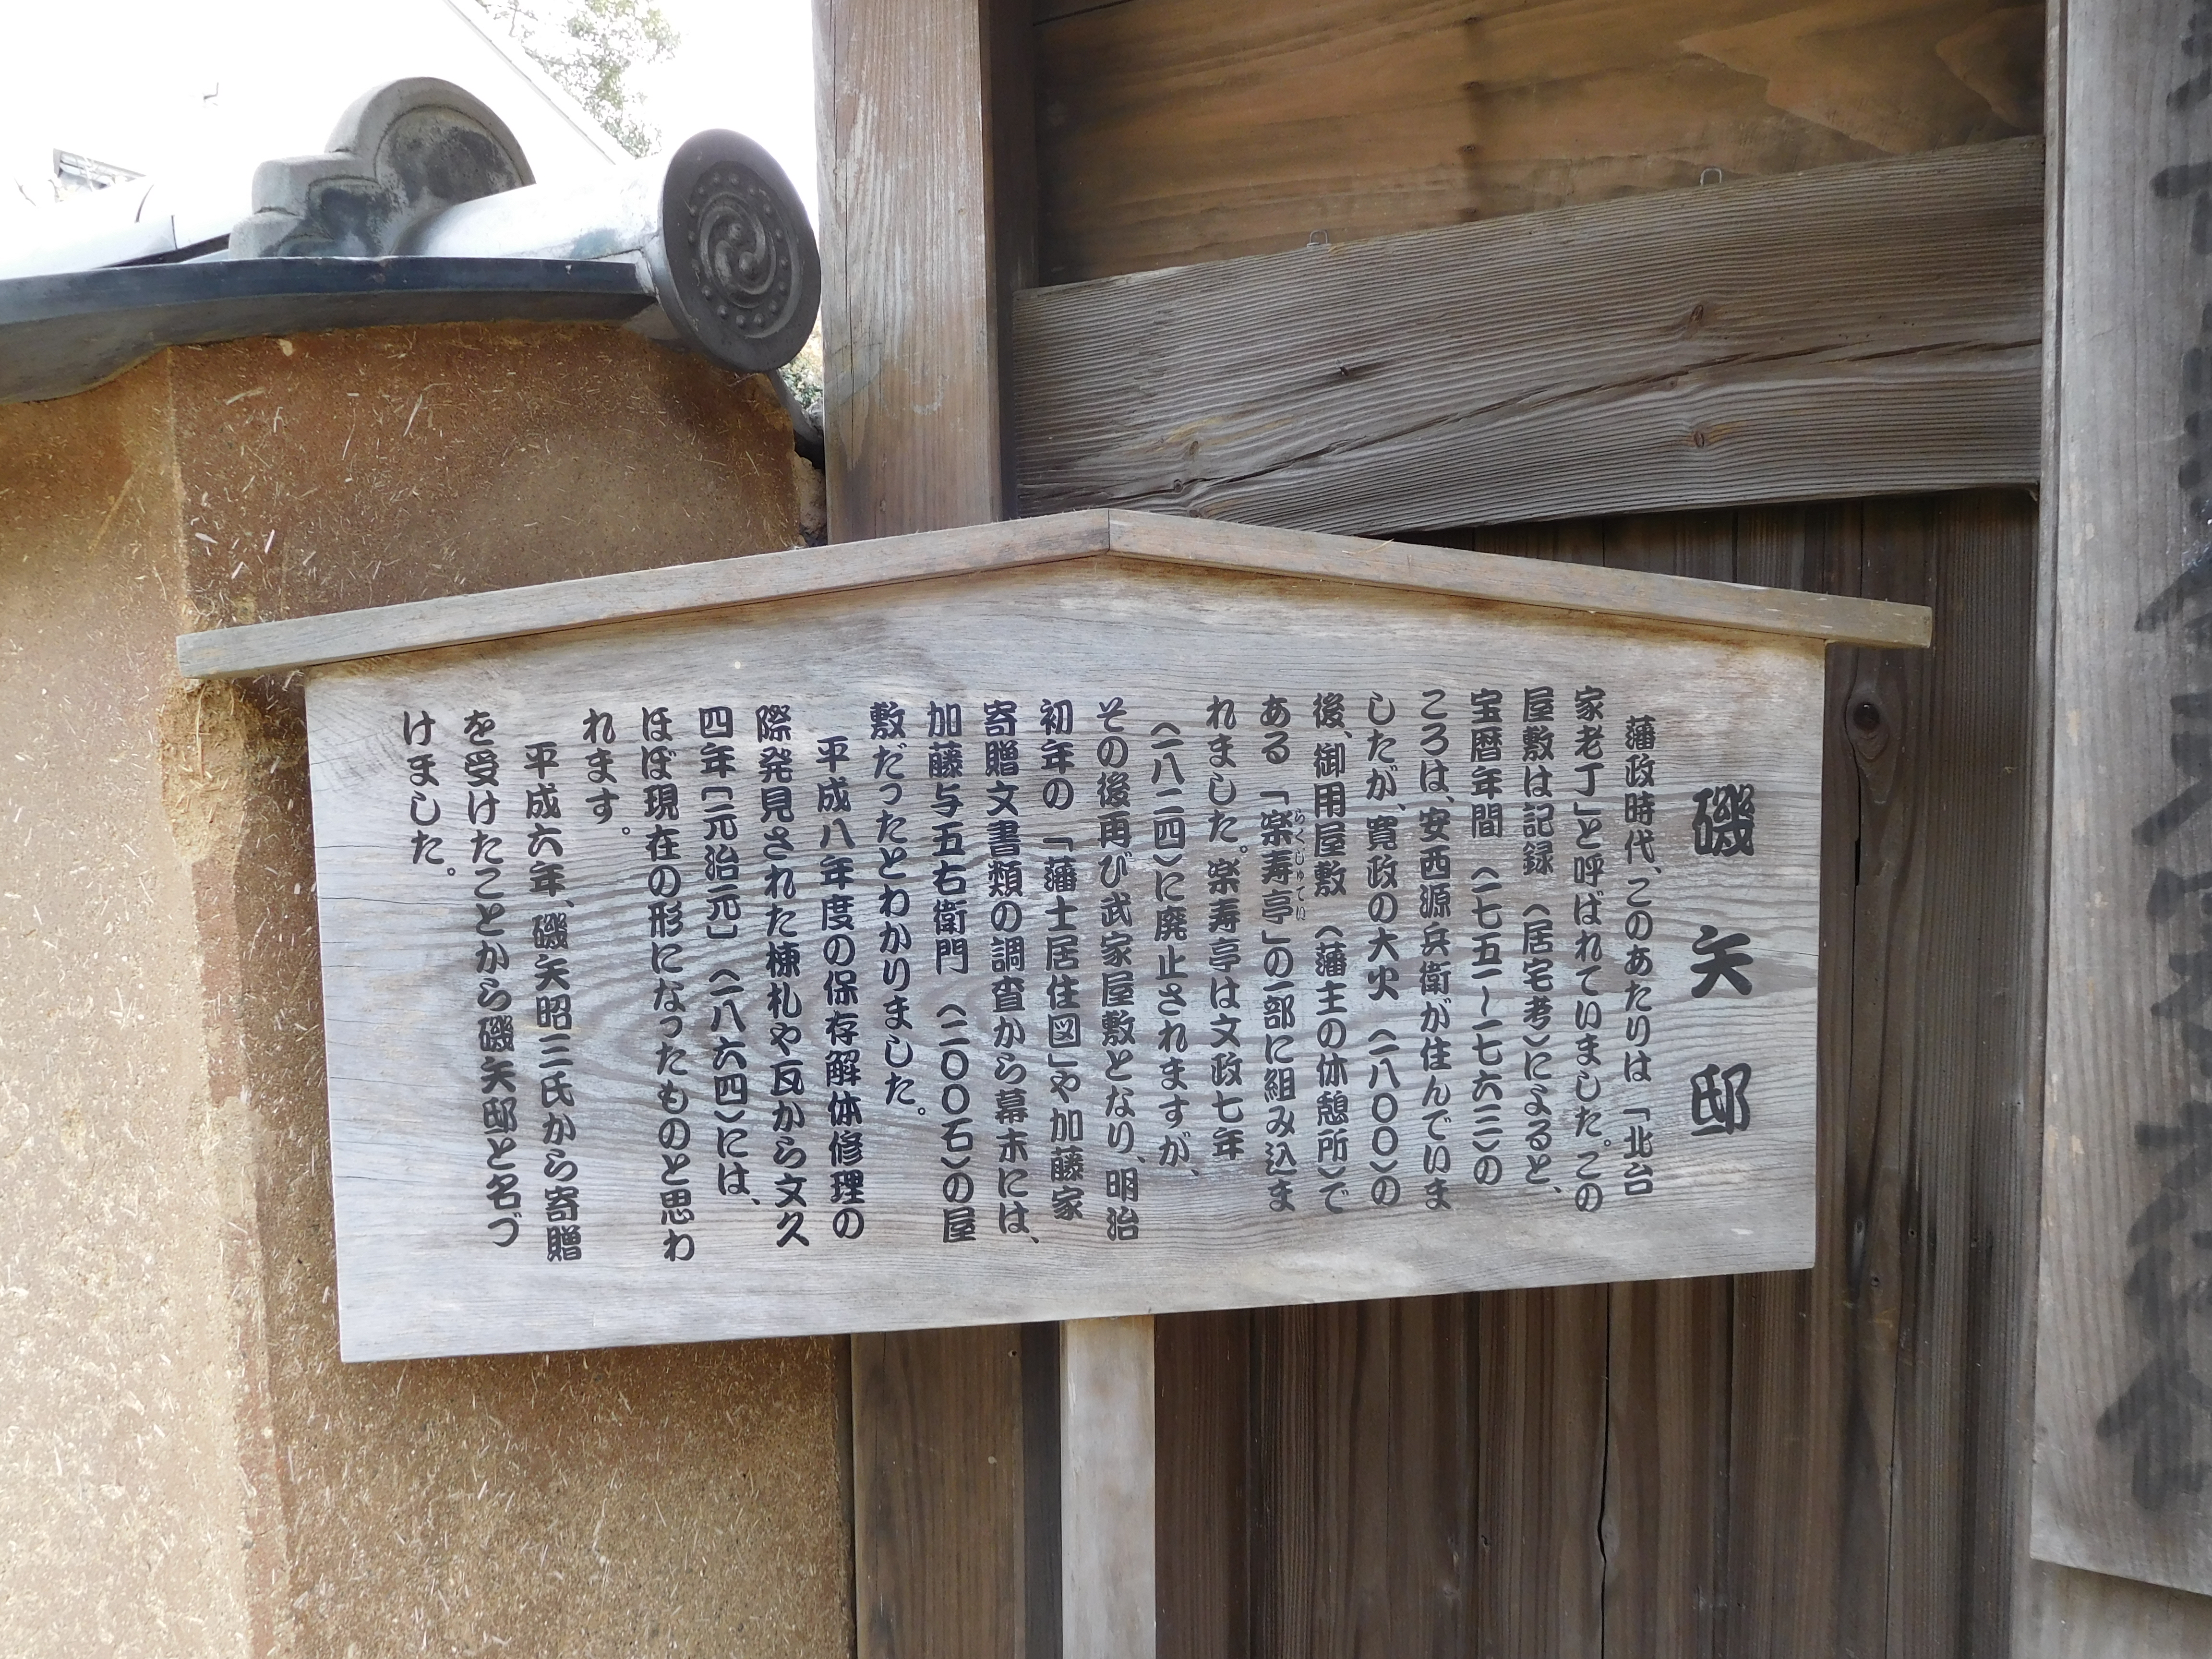 磯矢邸
藩政時代、このあたりは「北台
家老丁」と呼ばれていました。この
屋敷は記録（居宅考）によると、
宝暦年間（一七五一～一七六三）の
ころは、安西源兵衛が住んでいま
したが、寛政の大火（一八〇〇）の
後、御用屋敷（藩主の休憩所）で
ある「楽寿亭」の一部に組み込ま
らくじゅてい
れました。楽寿亭は文政七年
（一八二四）に廃止されますが、
その後再び武家屋敷となり、明治
初年の「藩士居住図」や加藤家
寄贈文書類の調査から幕末には、
加藤与五右衛門（二〇〇石）の屋
敷だったとわかりました。
平成八年度の保存解体修理の
際発見された棟札や瓦から文久
四年〔元治元〕（一八六四）には、
ほぼ現在の形になったものと思わ
れます。
平成六年、磯矢昭三氏から寄贈
を受けたことから磯矢邸と名づ
けました。